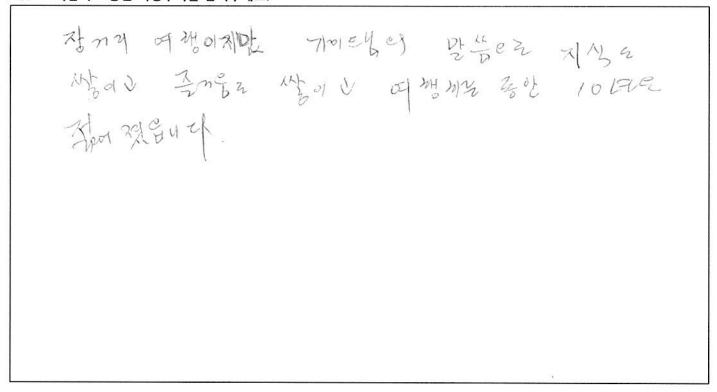 장거리 여행이지만 가이드님의 말씀으로 지식도
쌓이고 즐거움도 쌓이고 여행하는 동안 10년은
젊어 졌읍니다.